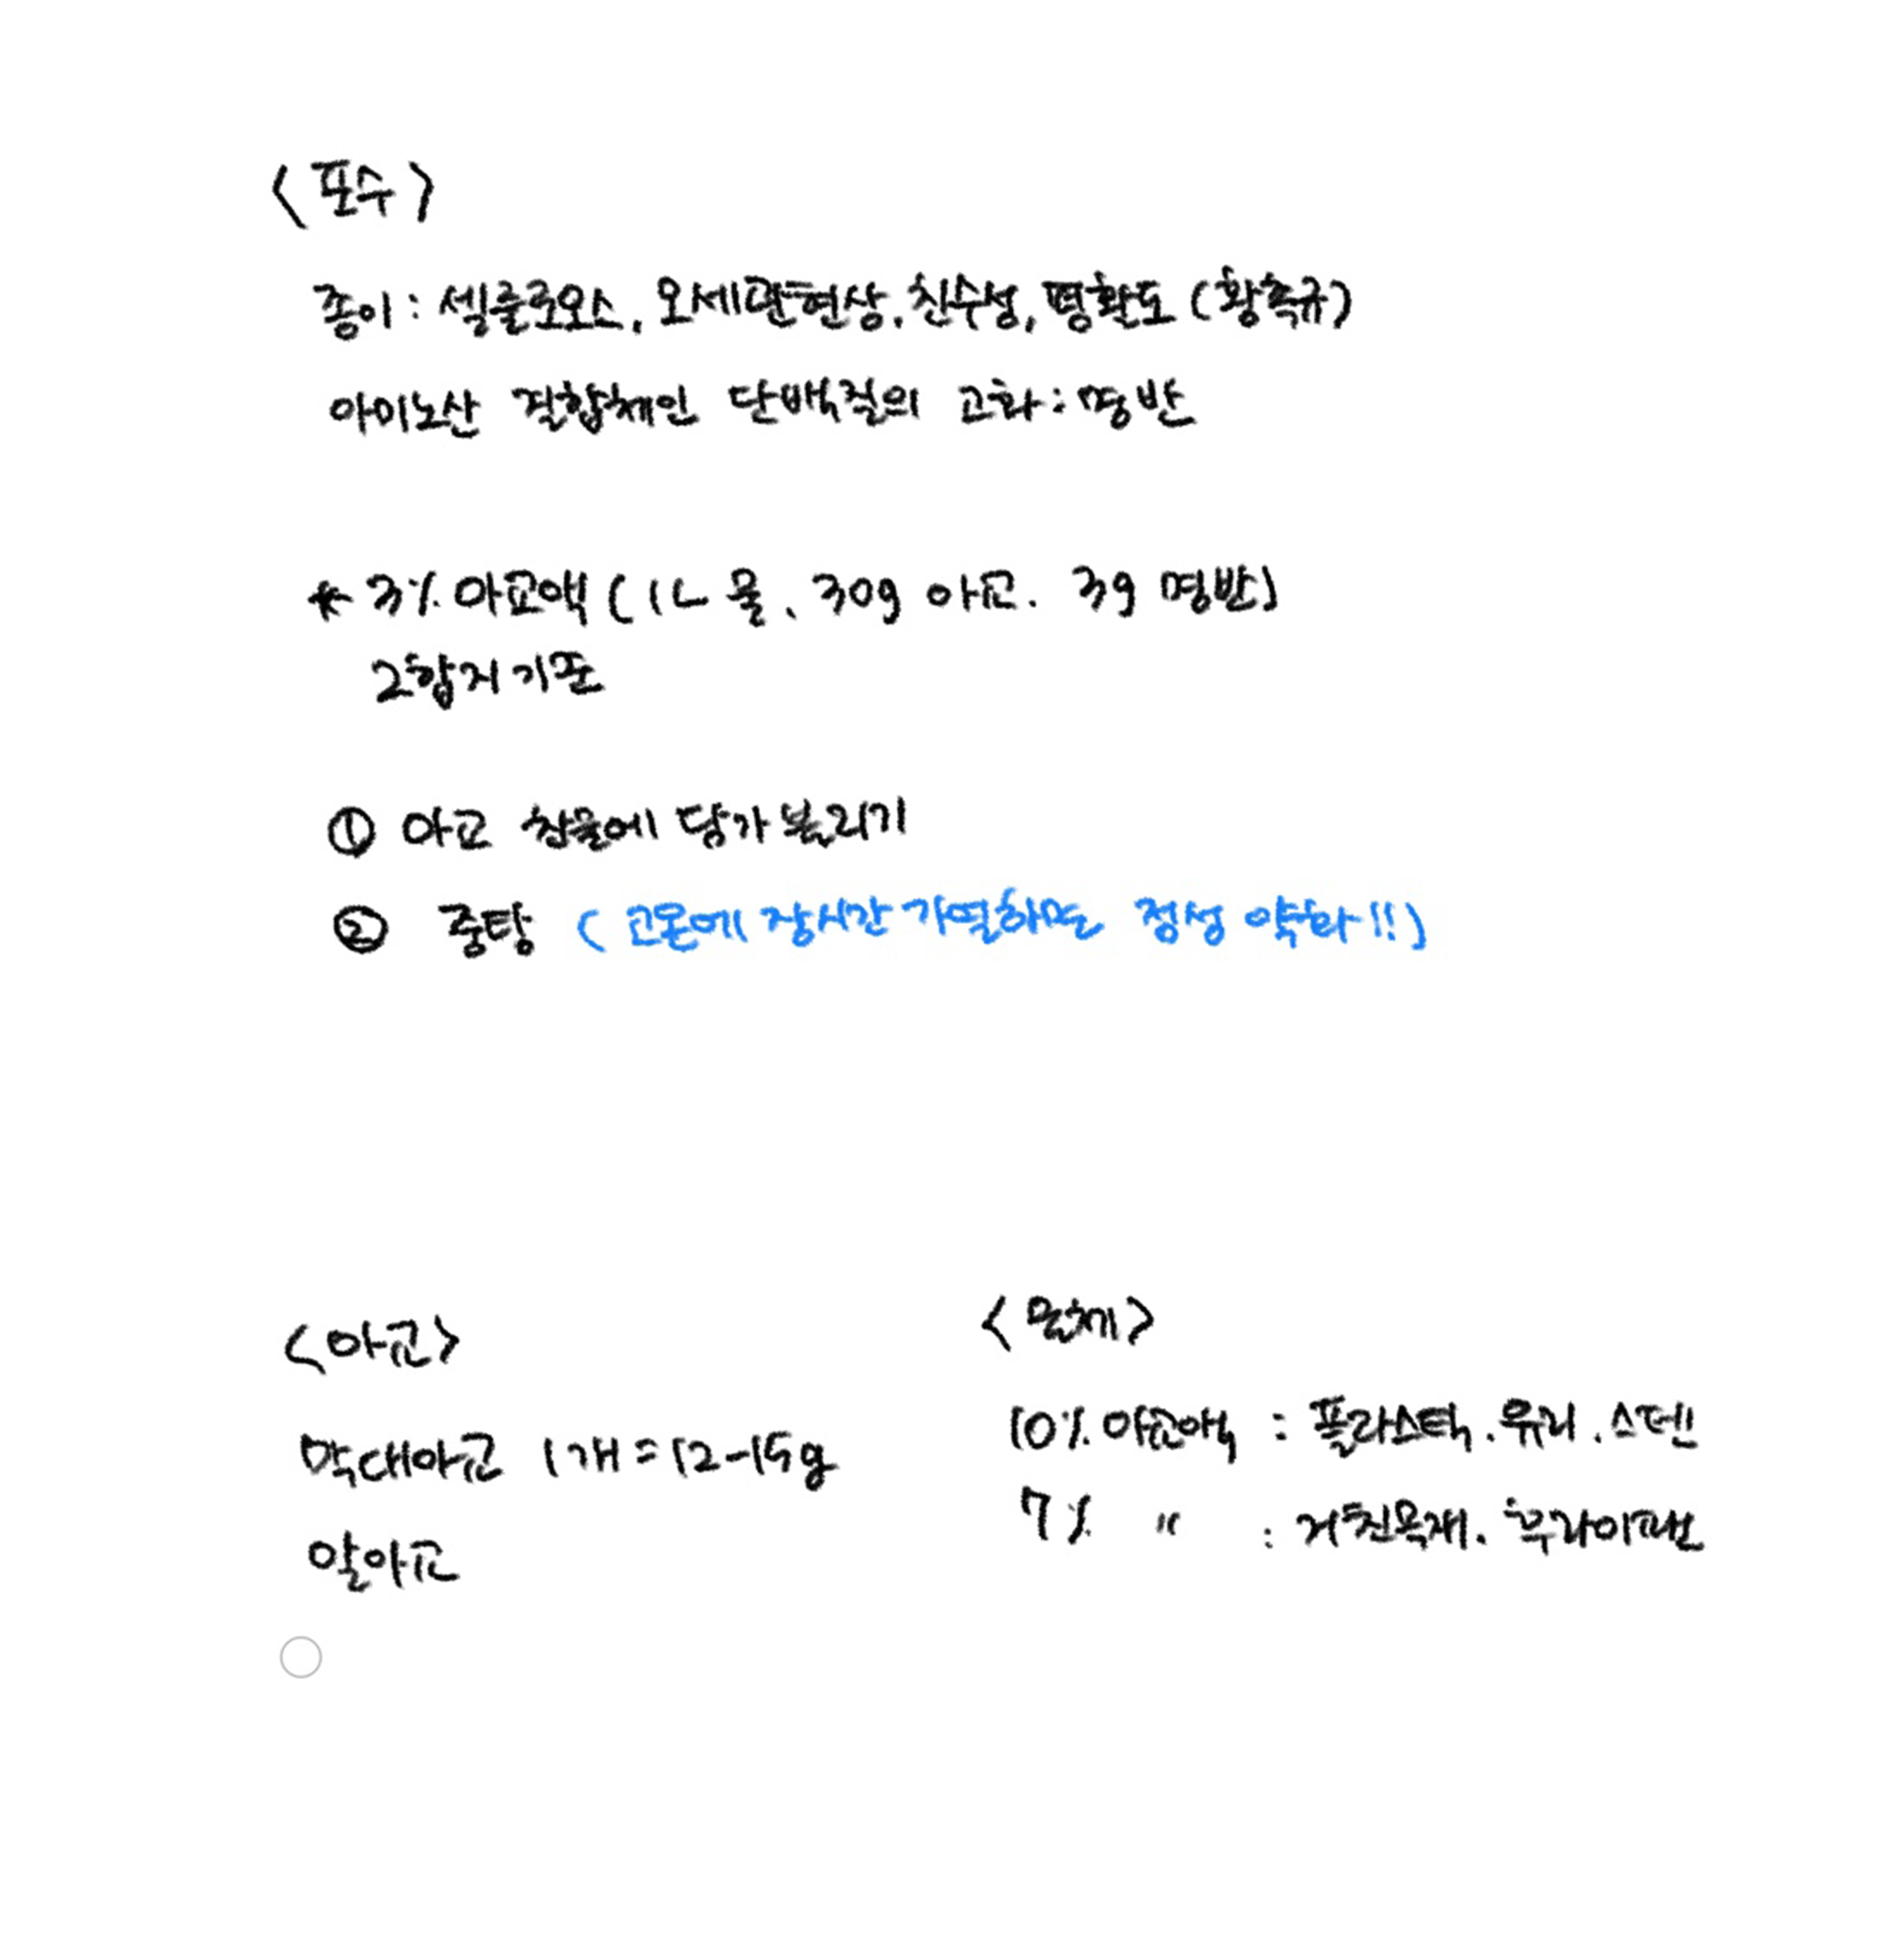 <포수>
종이 : 셀룰로오스, 모세관현상, 친수성, 평활도 (황촉규)
아미노산 결합체인 단백질의 고화 : 명반
* 3% 아교액 (1L 물, 30g 아교. 3g 명반)
2합지 기준
① 아교 찬물에 담가 불리기
② 중탕 (고온에 장시간 가열하면 점성 약화!!)
<아교>
막대아교 1개 = 12-15g
알아교
<물체>
10% 아교액 : 플라스틱. 유리. 스덴
7% " : 거친목재. 후라이팬